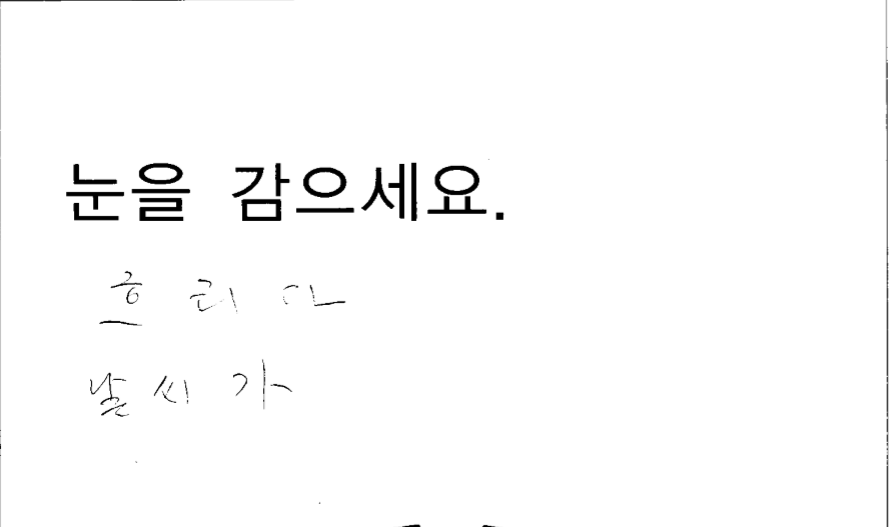 눈을 감으세요.
흐리다
날씨가